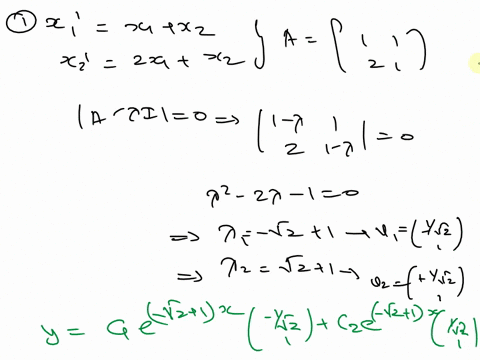 ① x₁' = x₁ + x₂
x₂' = 2x₁ + x₂ } A = ( 1 1 ; 2 1 )
|A - λI| = 0 ⇒ | 1-λ 1 ; 2 1-λ | = 0
λ² - 2λ - 1 = 0
⇒ λ₁ = -√2 + 1 → v₁ = ( -1/√2 ; 1 )
⇒ λ₂ = √2 + 1 → v₂ = ( +1/√2 ; 1 )
y = C₁ e^(-√2+1)x ( -1/√2 ; 1 ) + C₂ e^(-√2+1)x ( 1/√2 ; 1 )